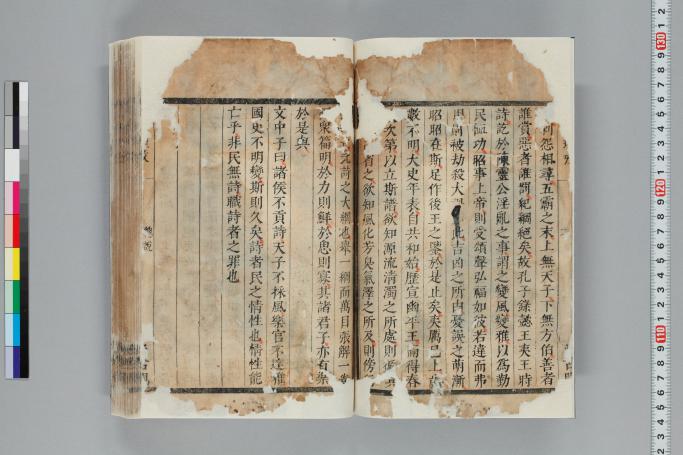 怨相尋五霸之末上無天子下無方伯善者
誰賞惡者誰罰紀綱絕矣故孔子錄懿王夷王時
詩訖於陳靈公淫亂之事謂之變風變雅以為勤
民恤功昭事上帝則受頌聲弘福如彼若違而弗
用則被劫殺大此吉凶之所由憂娛之萌漸
昭昭在斯足作後王之鑒於是止矣夷厲已上
數不明大史年表自共和始歷宣幽平王而得春
次第以立斯譜欲知源流清濁之所處則
省之欲知風化芳臭氣澤之所及則傍
詩之大綱也舉一綱而萬目張解一
眾篇明於力則鮮於思則寡其諸君子亦有樂
於是與
文中子曰諸侯不貢詩天子不採風樂官不達雅
國史不明變斯則久矣詩者民之情性也情性能
亡乎非民無詩職詩者之罪也